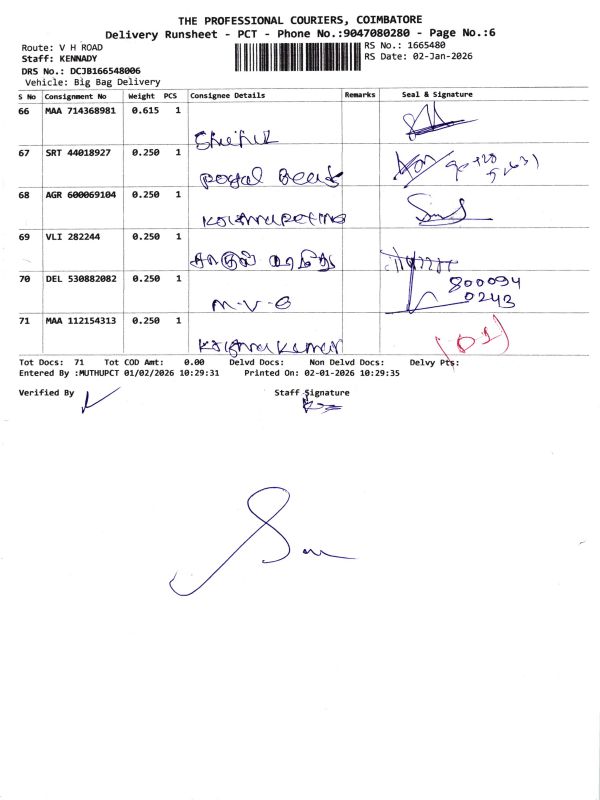 THE PROFESSIONAL COURIERS, COIMBATORE
Delivery Runsheet - PCT - Phone No.:9047080280 - Page No.:6
Route: V H ROAD
Staff: KENNADY
DRS No.: DCJB166548006
Vehicle: Big Bag Delivery
RS No.: 1665480
RS Date: 02-Jan-2026
S No Consignment No Weight PCS Consignee Details Remarks Seal & Signature
66 MAA 714368981 0.615 1
67 SRT 44018927 0.250 1
Royal
68 AGR 600069104 0.250 1
69 VLI 282244 0.250 1
70 DEL 530882082 0.250 1
M-V-G
800094
0243
71 MAA 112154313 0.250 1
Krishna Kumar
Tot Docs: 71 Tot COD Amt: 0.00 Delvd Docs: Non Delvd Docs: Delvy Pts:
Entered By :MUTHUPCT 01/02/2026 10:29:31 Printed On: 02-01-2026 10:29:35
Verified By Staff Signature